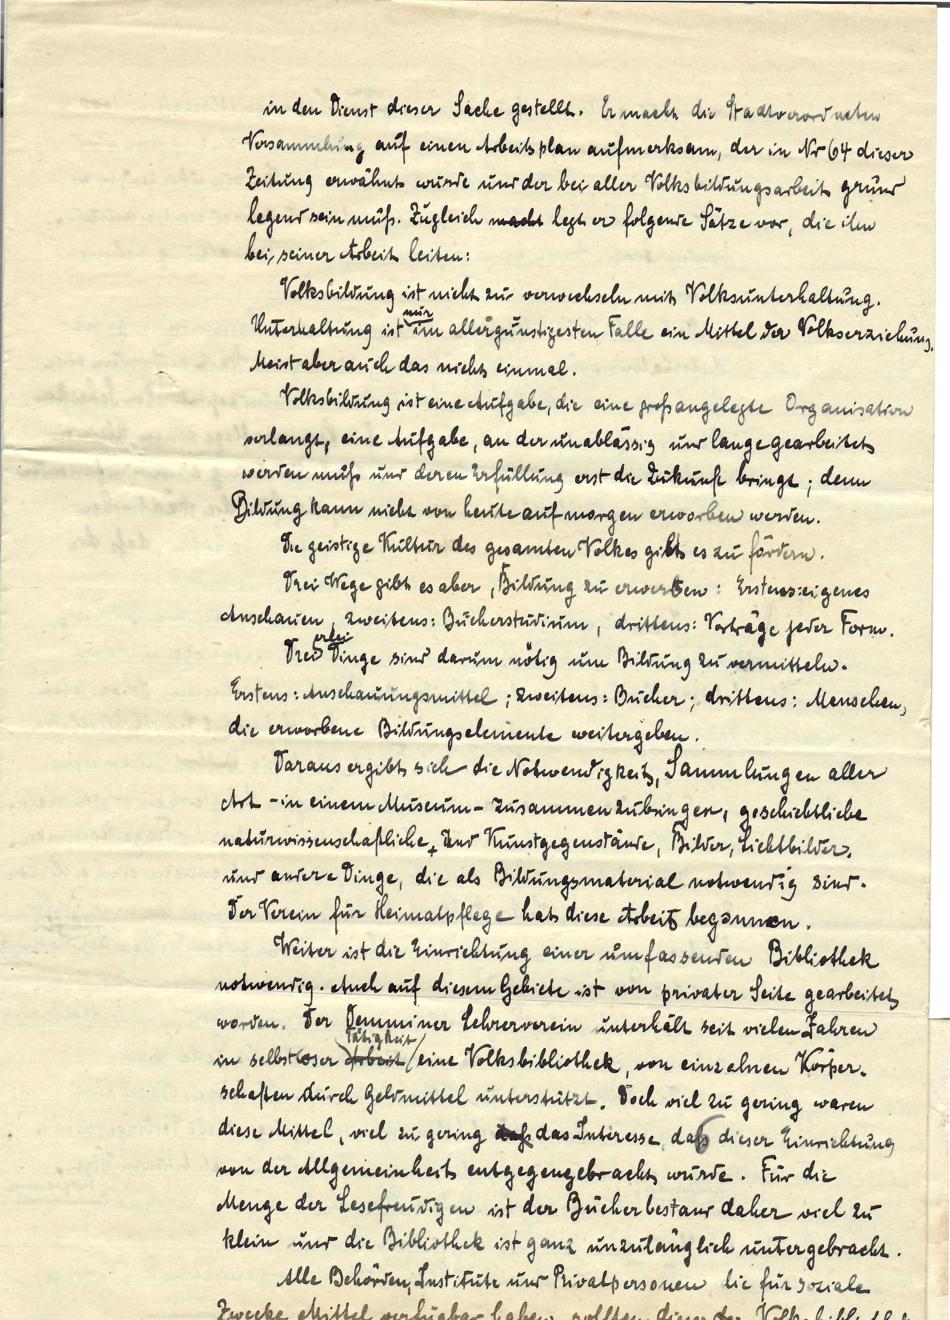 in den Dienst dieser Sache gestellt. Er macht die Stadtverordneten
Versammlung auf einen Arbeitsplan aufmerksam, der in Nr 64 dieser
Zeitung erwähnt wurde und der bei aller Volksbildungsarbeit grund
legend sein muß. Zugleich macht legt er folgende Sätze vor, die ihn
bei seiner Arbeit leiten:
Volksbildung ist nicht zu verwechseln mit Volksunterhaltung.
nur
Unterhaltung ist im allergünstigesten Falle ein Mittel der Volkserziehung.
Meist aber auch das nicht einmal.
Volksbildung ist eine Aufgabe, die eine großangelegte Organisation
verlangt, eine Aufgabe, an der unablässig und lange gearbeitet
werden muß und deren Erfüllung erst die Zukunft bringt; denn
Bildung kann nicht von heute auf morgen erworben werden.
Die geistige Kultur des gesamten Volkes gibt es zu fördern.
Drei Wege gibt es aber, Bildung zu erwerben: Erstens: eigenes
Anschauen, zweitens: Bücherstudium, drittens: Vorträge jeder Form.
erlei
Drei Dinge sind darum nötig um Bildung zu vermitteln.
Erstens: Anschauungsmittel; zweitens: Bücher; drittens: Menschen,
die erworbene Bildungselemente weitergeben.
Daraus ergibt sich die Notwendigkeit, Sammlungen aller
Art - in einem Museum - zusammenzubringen, geschichtliche
naturwissenschaftliche, und Kunstgegenstände, Bilder, Lichtbilder,
und andere Dinge, die als Bildungsmaterial notwendig sind.
Der Verein für Heimatpflege hat diese Arbeit begonnen.
Weiter ist die Einrichtung einer umfassenden Bibliothek
notwendig. Auch auf diesem Gebiete ist von privater Seite gearbeitet
worden. Der Demminer Lehrerverein unterhält seit vielen Jahren
Tätigkeit
in selbstloser Arbeit eine Volksbibliothek, von einzelnen Körper-
schaften durch Geldmittel unterstützt. Doch viel zu gering waren
diese Mittel, viel zu gering daß das Interesse, daß dieser Einrichtung
von der Allgemeinheit entgegengebracht wurde. Für die
Menge der Lesefreudigen ist der Bücherbestand daher viel zu
klein und die Bibliothek ist ganz unzulänglich untergebracht.
Alle Behörden, Institute und Privatpersonen die für soziale
Zwecke Mittel verfügbar haben, sollten dieser